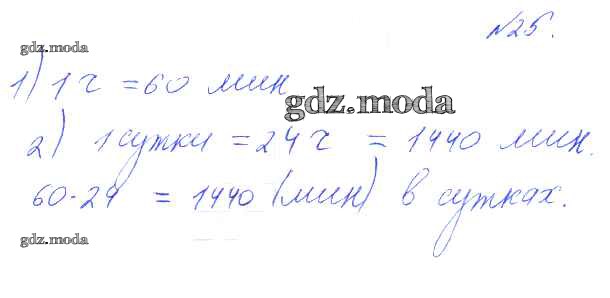 №25.
gdz.moda
1) 1 ч = 60 мин
gdz.moda
2) 1 сутки = 24 ч = 1440 мин.
60·24 = 1440 (мин) в сутках.
gdz.moda